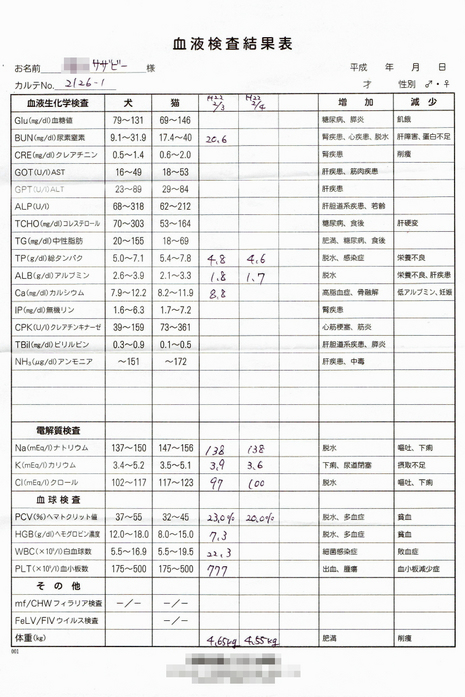 血液検査結果表
お名前 ササビー 様 平成 年 月 日
カルテNo. 2126-1 才 性別 ♂・♀
血液生化学検査 犬 猫 H22 2/3 H22 2/4 増加 減少
Glu(mg/dl)血糖値 79〜131 69〜146 糖尿病、膵炎 飢餓
BUN(mg/dl)尿素窒素 9.1〜31.9 17.4〜40 20.6 腎疾患、心疾患、脱水 肝障害、蛋白不足
CRE(mg/dl)クレアチニン 0.5〜1.4 0.6〜2.0 腎疾患 削瘦
GOT(U/l)AST 16〜49 18〜53 肝疾患、筋肉疾患
GPT(U/l)ALT 23〜89 29〜84 肝疾患
ALP(U/l) 68〜318 62〜212 肝胆道系疾患、若齢
TCHO(mg/dl)コレステロール 70〜303 53〜164 糖尿病、食後 肝硬変
TG(mg/dl)中性脂肪 20〜155 18〜69 肥満、糖尿病、食後
TP(g/dl)総タンパク 5.0〜7.1 5.4〜7.8 4.8 4.6 脱水、感染症 栄養不良
ALB(g/dl)アルブミン 2.6〜3.9 2.1〜3.3 1.8 1.7 脱水 栄養不良、肝疾患
Ca(mg/dl)カルシウム 7.9〜12.2 8.2〜11.9 8.8 高脂血症、骨融解 低アルブミン、妊娠
IP(mg/dl)無機リン 1.6〜6.3 1.7〜7.2 腎疾患
CPK(U/l)クレアチンキナーゼ 39〜159 73〜361 心筋梗塞、筋炎
TBil(mg/dl)ビリルビン 0.3〜0.9 0.1〜0.5 肝胆道系疾患、膵炎
NH₃(μg/dl)アンモニア 〜151 〜172 肝疾患、中毒
電解質検査
Na(mEq/l)ナトリウム 137〜150 147〜156 138 138 脱水 嘔吐、下痢
K(mEq/l)カリウム 3.4〜5.2 3.5〜5.1 3.9 3.6 下痢、尿道閉塞 摂取不足
Cl(mEq/l)クロール 102〜117 117〜123 97 100 脱水 嘔吐、下痢
血球検査
PCV(%)ヘマトクリット値 37〜55 32〜45 23.0% 20.0% 脱水、多血症 貧血
HGB(g/dl)ヘモグロビン濃度 12.0〜18.0 8.0〜15.0 7.3 脱水、多血症 貧血
WBC(×10³/l)白血球数 5.5〜16.9 5.5〜19.5 22.3 細菌感染症 敗血症
PLT(×10³/l)血小板数 175〜500 175〜500 777 出血、腫瘍 血小板減少症
その他
mf/CHWフィラリア検査 −/− −/−
FeLV/FIVウイルス検査 −/−
体重(kg) 4.65kg 4.55kg 肥満 削瘦
001